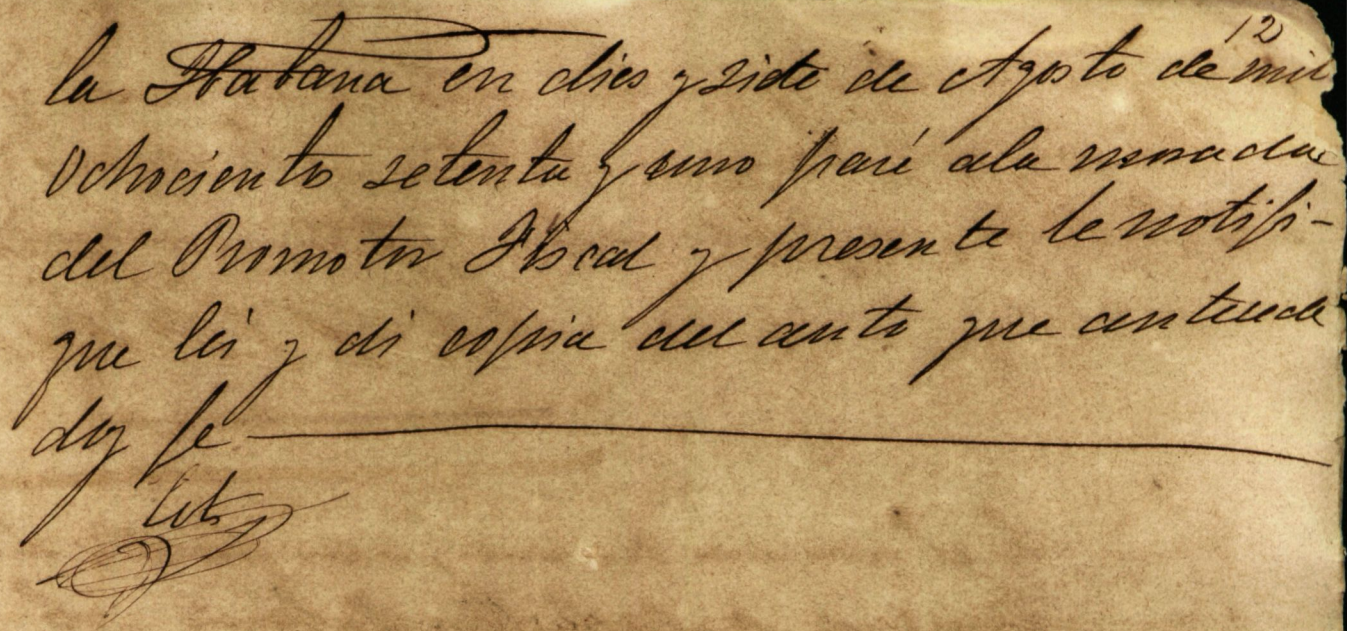 12
la Habana en dies y siete de Agosto de mil
Ochociento setenta y uno pasé ala morada
del Promotor Fiscal y presente le notifi-
que lei y di copia del auto que antecede
doy fe